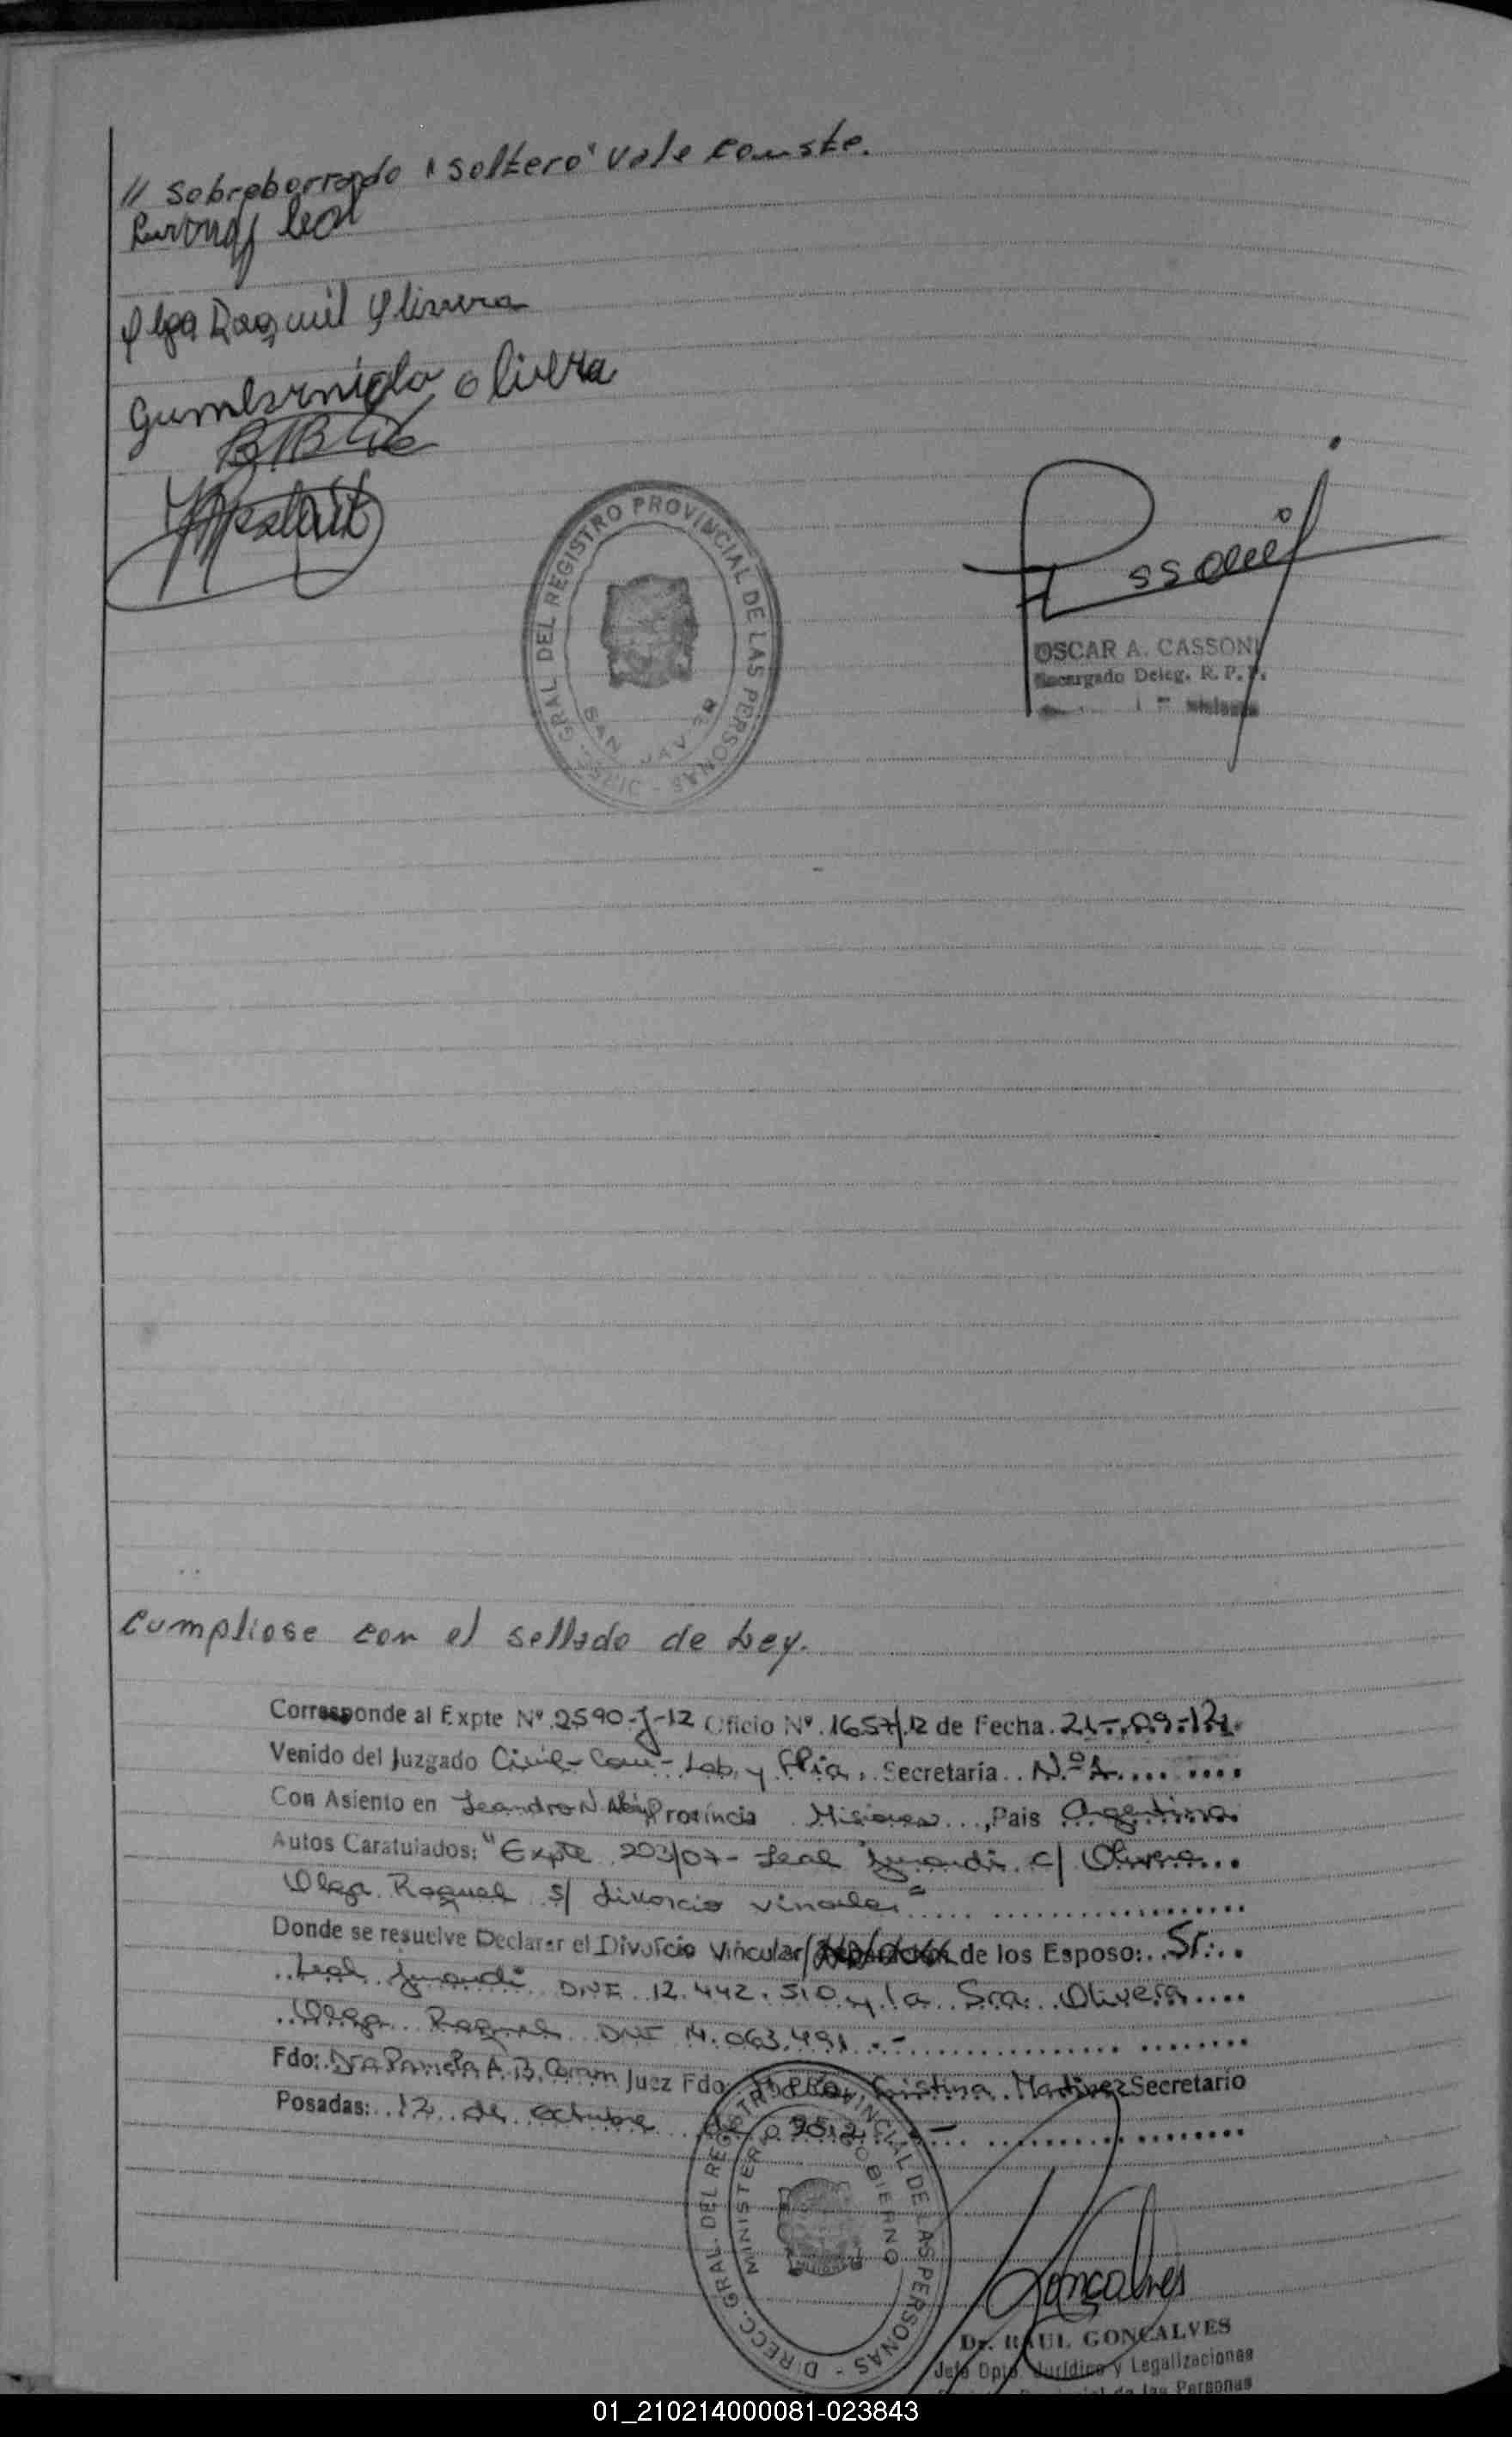 // Sobreborrado "soltero" vale conste.
Leal
Olga Raquel Olivera
Gumersinda Olivera
DIRECC. GRAL DEL REGISTRO PROVINCIAL DE LAS PERSONAS -
SAN JAVIER
OSCAR A. CASSONI
Encargado Deleg. R. P. P.
Cumpliose con el sellado de Ley.
Corresponde al Expte Nº 2590-J-12 Oficio Nº 1657/12 de Fecha 21-09-12.
Venido del Juzgado Civil-Com-Lab. y Flia. Secretaría Nº 1
Con Asiento en Leandro N. Alem Provincia Misiones, Pais Argentina
Autos Caratulados: "Expte 203/07 - Leal Jurandi c/ Olivera
Olga Raquel s/ divorcio vincular"
Donde se resuelve Declarar el Divorcio Vincular/ de los Esposo: Sr.
Leal Jurandi DNI 12.442.510 y la Sra. Olivera
Olga Raquel DNI 14.063.491.-
Fdo: Dra A. B. Juez Fdo: Cristina Martinez Secretario
Posadas: 12 de octubre de 2012.-
DIRECC. GRAL. DEL REGISTRO PROVINCIAL DE LAS PERSONAS -
MINISTERIO GOBIERNO
Goncalves
Dr. RAUL GONCALVES
Jefe Dpto. Jurídico y Legalizaciones
de las Personas
01_210214000081-023843